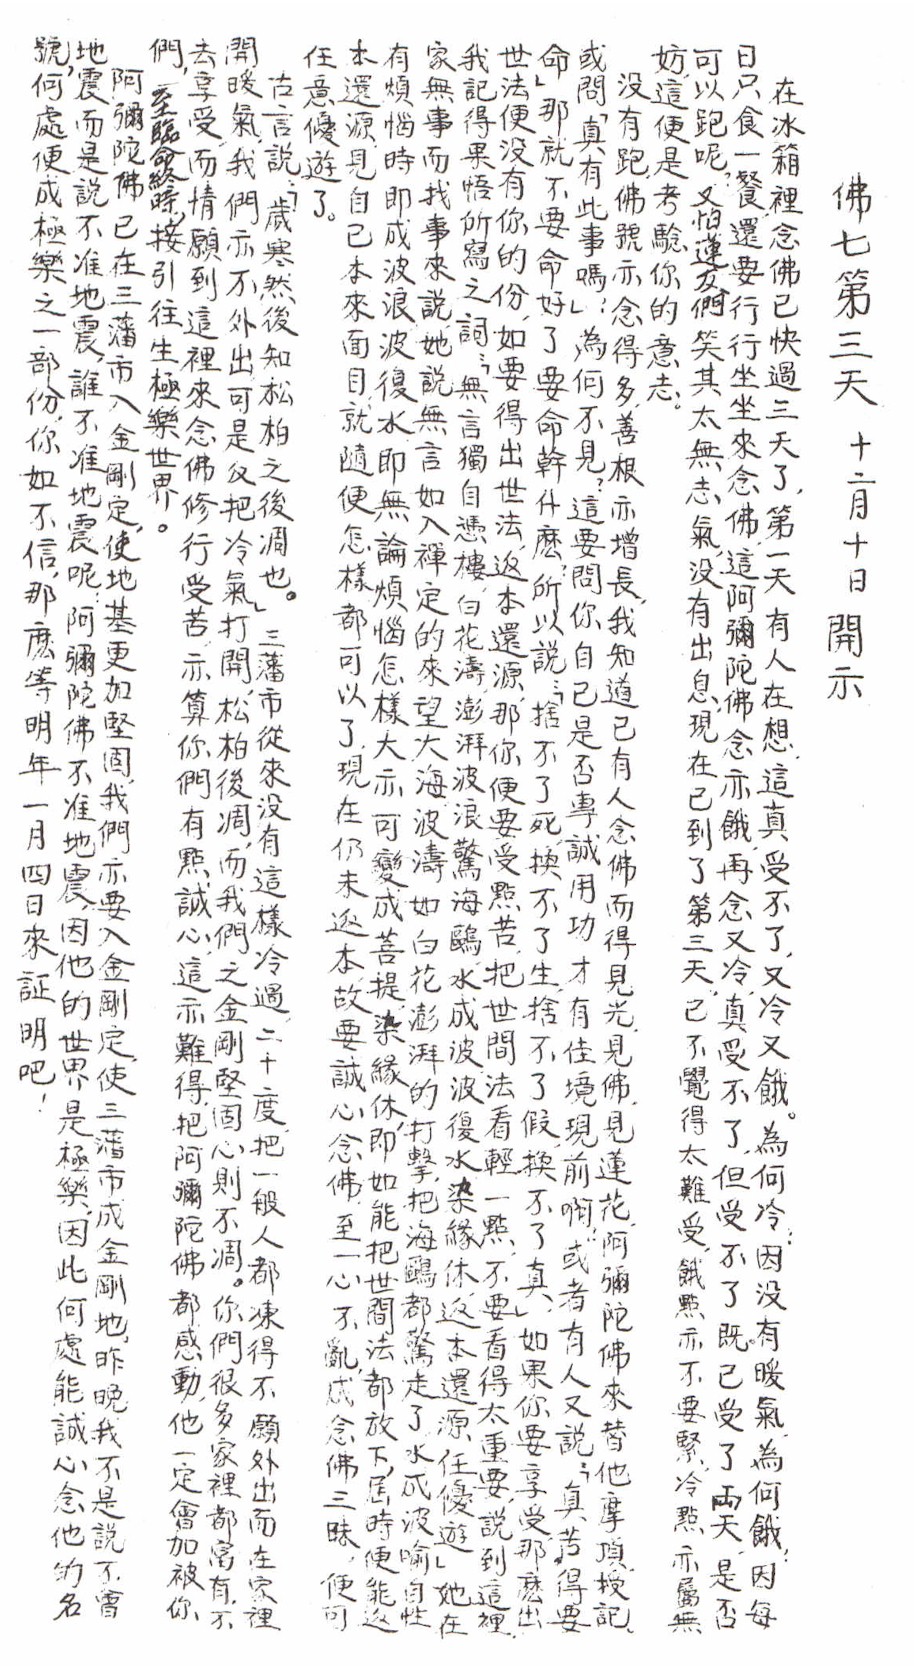 佛七第三天 十二月十日開示
在冰箱裡念佛已快過三天了，第一天有人在想，這真受不了，又冷又餓。為何冷？因沒有暖氣，為何餓？因每
日只食一餐，還要行行坐坐來念佛，這阿彌陀佛念亦餓，再念又冷，真受不了，但受不了既已受了兩天，是否
可以跑呢？又怕蓮友們笑其太無志氣，沒有出息，現在已到了第三天，已不覺得太難受，餓點亦不要緊，冷點亦屬無
妨，這便是考驗你的意志。
沒有跑佛號亦念得多，善根亦增長，我知道已有人念佛而得見光，見佛，見蓮花，阿彌陀佛來替他摩頂授記。
或問「真有此事嗎？」為何不見？這要問你自己是否專誠用功，才有佳境現前啊！或者有人又說：「真苦得要
命」那就不要命好了，要命幹什麽，所以說：「捨不了死，換不了生，捨不了假，換不了真」如果你要享受，那麽出
世法便沒有你的份，如要得出世法，返本還源，那你便要受點苦，把世間法看輕一點，不要看得太重要，說到這裡
我記得果悟所寫之詞：「無言獨自憑樓，白花濤，澎湃波浪驚海鷗，水成波，波復水，染緣休，返本還源任優遊」她在
家無事而找事來說，她說無言如入禪定的來望大海，波濤如白花澎湃的打擊，把海鷗都驚走了，水成波喻自性
有煩惱時即成波浪，波復水即無論煩惱怎樣大亦可變成菩提，染緣休，即如能把世間法都放下，屆時便能返
本還源，見自己本來面目，就隨便怎樣都可以了，現在仍未返本，故要誠心念佛，至一心不亂，成念佛三昧，便可
任意優遊了。
古言說：「歲寒然後知松柏之後凋也。」三藩市從來沒有這樣冷過，二十度，把一般人都凍得不願外出，而在家裡
開暖氣，我們亦不外出，可是反把冷氣打開，松柏後凋，而我們之金剛堅固心則不凋。你們很多家裡都富有，不
去享受，而情願到這裡來念佛修行受苦，亦算你們有點誠心，這亦難得，把阿彌陀佛都感動，他一定會加被你
們，至臨命終時，接引往生極樂世界。
阿彌陀佛已在三藩市入金剛定，使地基更加堅固，我們亦要入金剛定，使三藩市成金剛地，昨晚我不是說不會
地震，而是說不准地震，誰不准地震呢？阿彌陀佛不准地震，因他的世界是極樂，因此何處能誠心念他的名
號，何處便成極樂之一部份，你如不信，那麽等明年一月四日來証明吧！